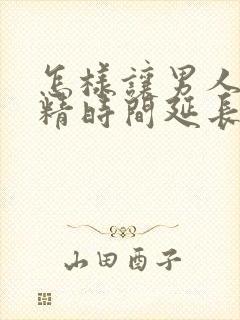 怎樣讓男人
精時間延長
山田酉子